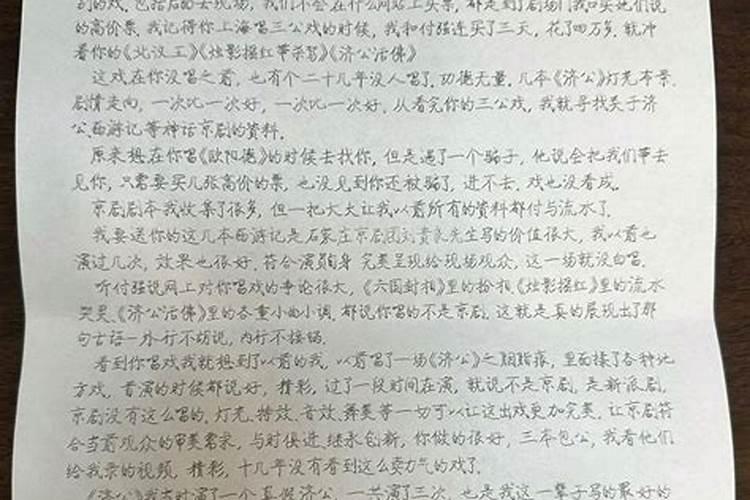 别的戏,包括后的去现场,我们不会在什么网站上买票,都是到了剧场门我口买她们说
的高价票.我记得你上海唱三公戏的时候,我和付强连买了三天,花了四万多,就冲
看你的《北汉王》《烛影摇红带杀驾》《济公活佛》
这戏在你没唱之前,也有个二十几年没人唱了.功德无量.几本《济公》灯光布景.
剧情走向,一次比一次好,一次比一次好.从看完你的三公戏,我就寻找关于济
公西游记等神话京剧的资料.
原来想在你唱《欧阳德》的时候去找你,但是遇了一个骗子,他说会把我们带去
见你,只需要买几张高价的票,也没见到你还被骗了,进不去,戏也没看成.
京剧剧本我收集了很多,但一把大火让我以前所有的资料都付与流水了.
我要送你的这几本西游记是石家庄京剧团刘贵先生写的价值很大,我以前也
演过几次,效果也很好.符合演员自身 完美呈现给现场观众,这一场就没白唱.
听付强说网上对你唱戏的争论很大,《六国封相》里的扮相《烛影摇红》里的流水
哭灵.《济公活佛》里的各量小曲小调.都说你唱的不是京剧.这就是真的展现出了那
句古语一外行不胡说,内行不接锅.
看到你唱戏我就想到了以前的我,以前唱了一场《济公》之胭脂痕,里面揉了各种地
方戏,首演的时候都说好,精彩,过了一段时间在演,就说不是京剧,是新派剧,
京剧没有这么唱的.灯光.特效.音效.舞美等一切可以让这出戏更加完美.让京剧符
合当前观众的审美需求,与时俱进.继承创新,你做的很好,三本包公,我看他们
给我录的视频,精彩,十几年没有看到这么卖力气的戏了.
《济公》我古时演了一个真假济公,一共演了三次,也是我这一辈子写的最好的